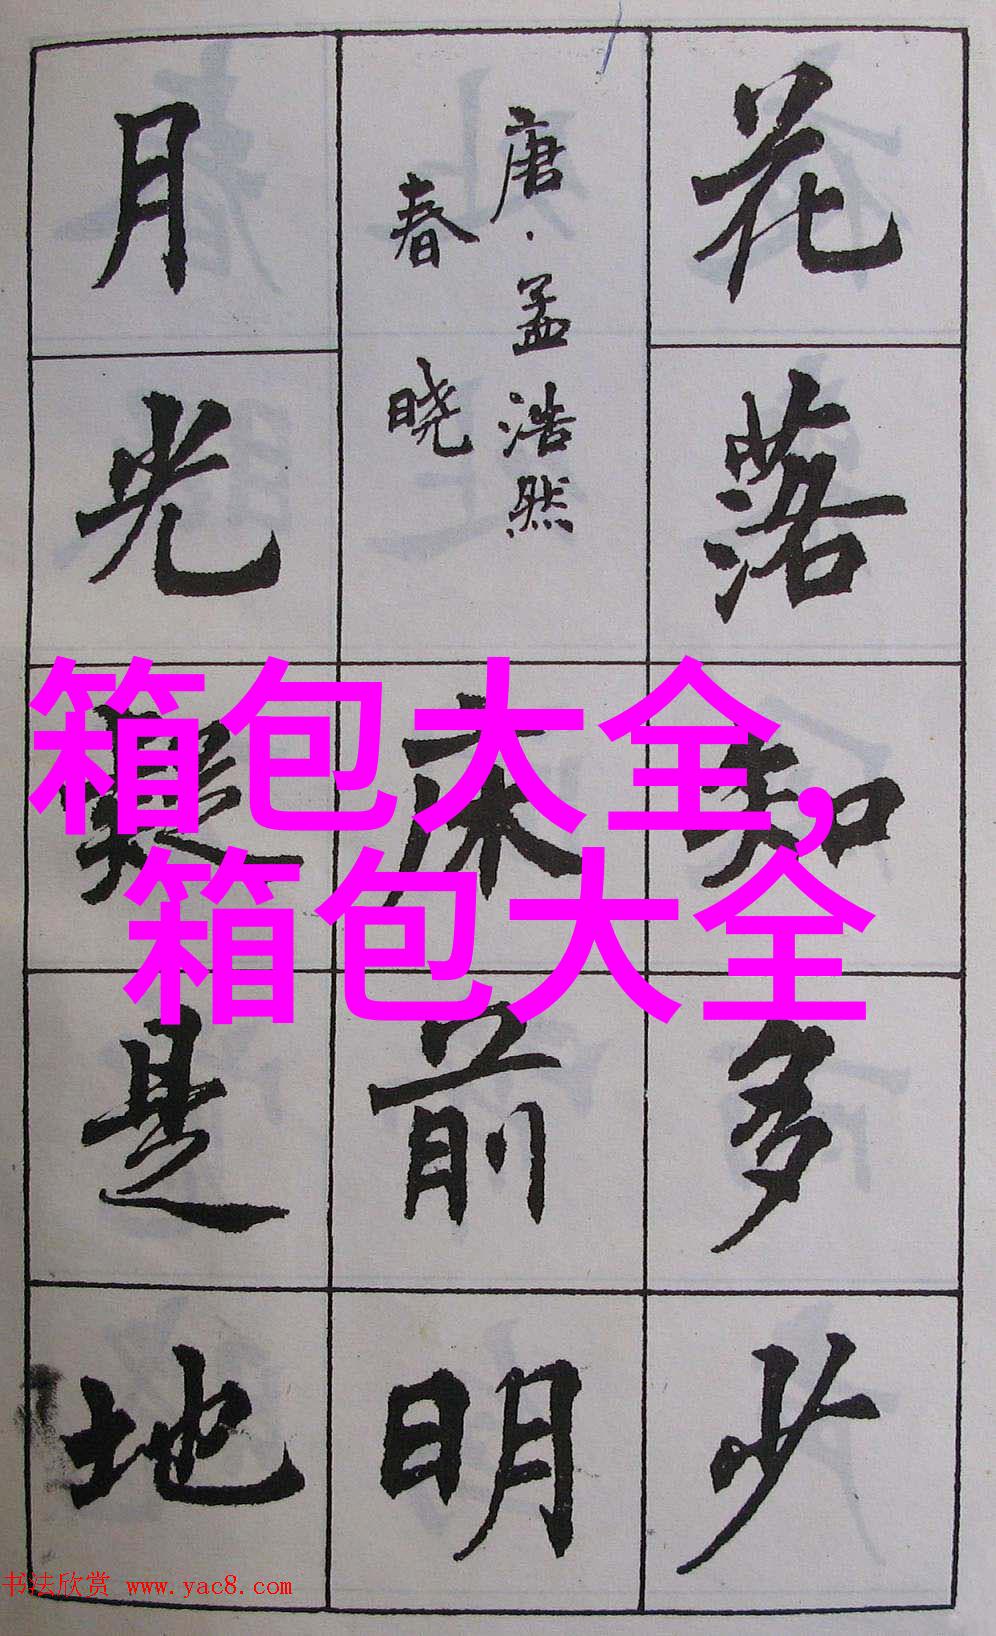 花落知多少
唐·孟浩然
春晓
床前明
月光疑是地
箱包大全,
箱包大全
书法欣赏 www.yac8.com